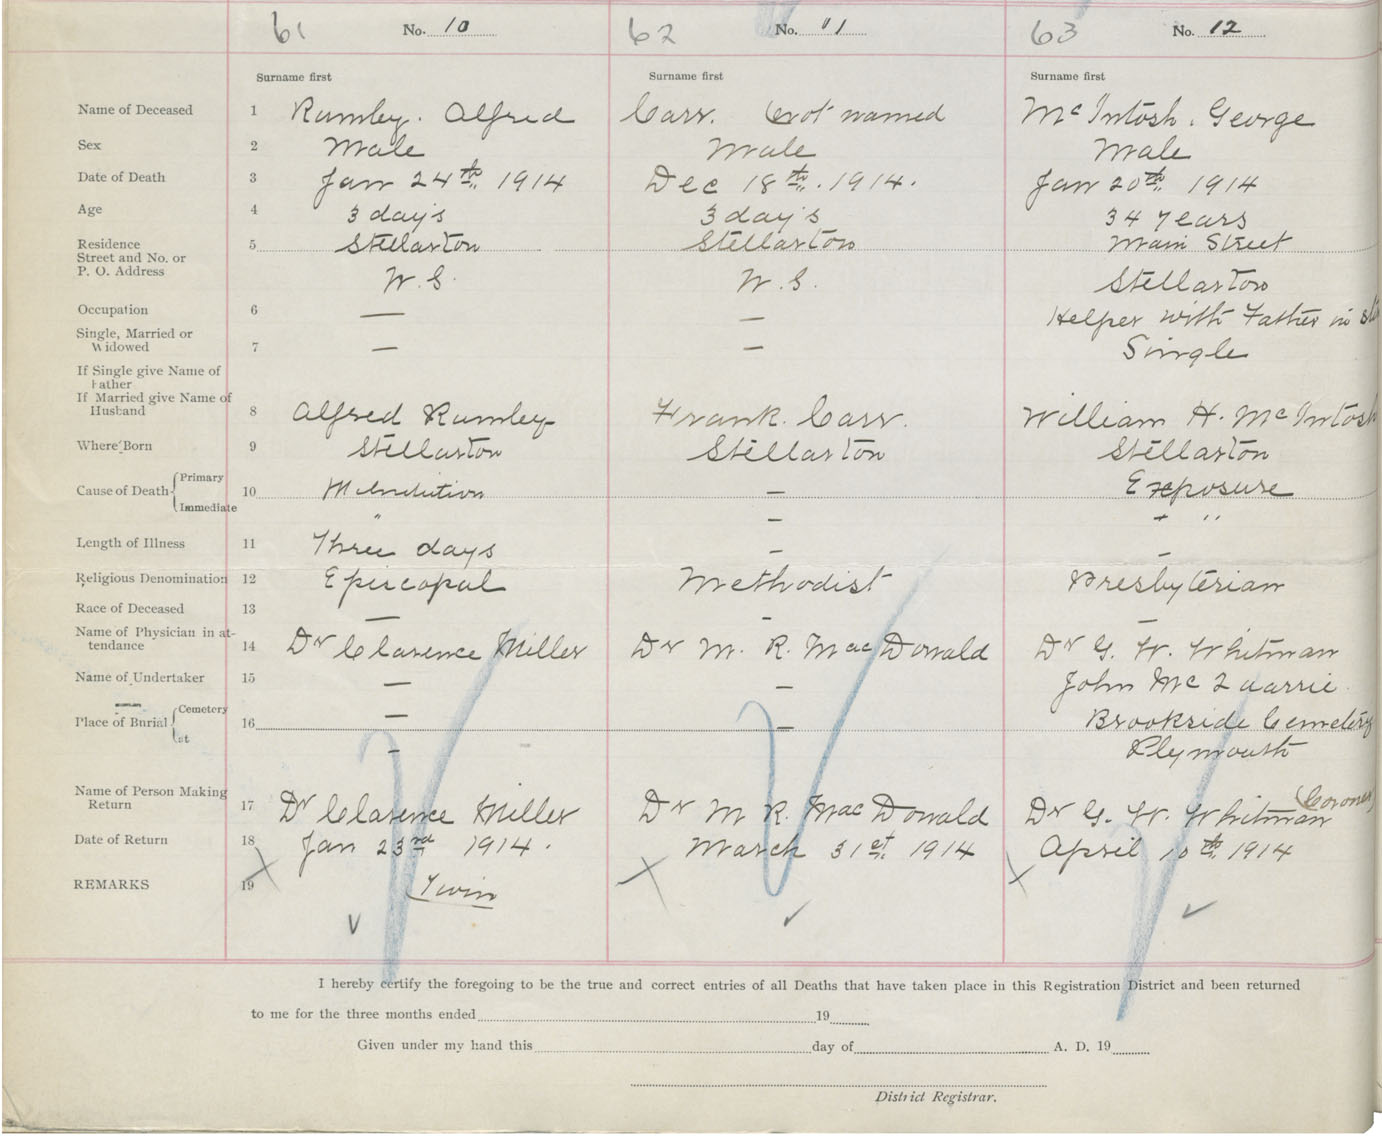 61 No. 10 62 No. 11 63 No. 12
Surname first Surname first Surname first
Name of Deceased 1 Rumley. Alfred Carr. (not named McIntosh. George
Sex 2 Male Male Male
Date of Death 3 Jan 24th. 1914 Dec 18th. 1914. Jan 20th 1914
Age 4 3 day's 3 day's 34 years
Residence 5 Stellarton Stellarton Main Street
Street and No. or
P. O. Address W.S. W.S. Stellarton
Occupation 6 — — Helper with Father in
Single, Married or
Widowed 7 — — Single
If Single give Name of
Father
If Married give Name of
Husband 8 Alfred Rumley Frank. Carr. William H. McIntosh
Where Born 9 Stellarton Stellarton Stellarton
Cause of Death Primary 10 — Exposure
Immediate " — " "
Length of Illness 11 Three days — —
Religious Denomination 12 Episcopal Methodist Presbyterian
Race of Deceased 13 — - —
Name of Physician in at-
tendance 14 Dr Clarence Miller Dr M. R. MacDonald Dr G. W. Whitman
Name of Undertaker 15 — — John McQuarrie.
Place of Burial Cemetery 16 — — Brookside Cemetery
at - Plymouth
Name of Person Making
Return 17 Dr Clarence Miller Dr M R. MacDonald Dr G. W. Whitman (Coroner)
Date of Return 18 Jan 23rd 1914. March 31st. 1914 April 10th. 1914
REMARKS 19 Twin
I hereby certify the foregoing to be the true and correct entries of all Deaths that have taken place in this Registration District and been returned
to me for the three months ended 19
Given under my hand this day of A. D. 19
District Registrar.